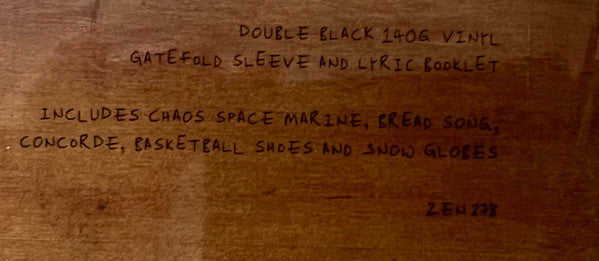 DOUBLE BLACK 140G VINYL
GATEFOLD SLEEVE AND LYRIC BOOKLET
INCLUDES CHAOS SPACE MARINE, BREAD SONG,
CONCORDE, BASKETBALL SHOES AND SNOW GLOBES
ZEN278